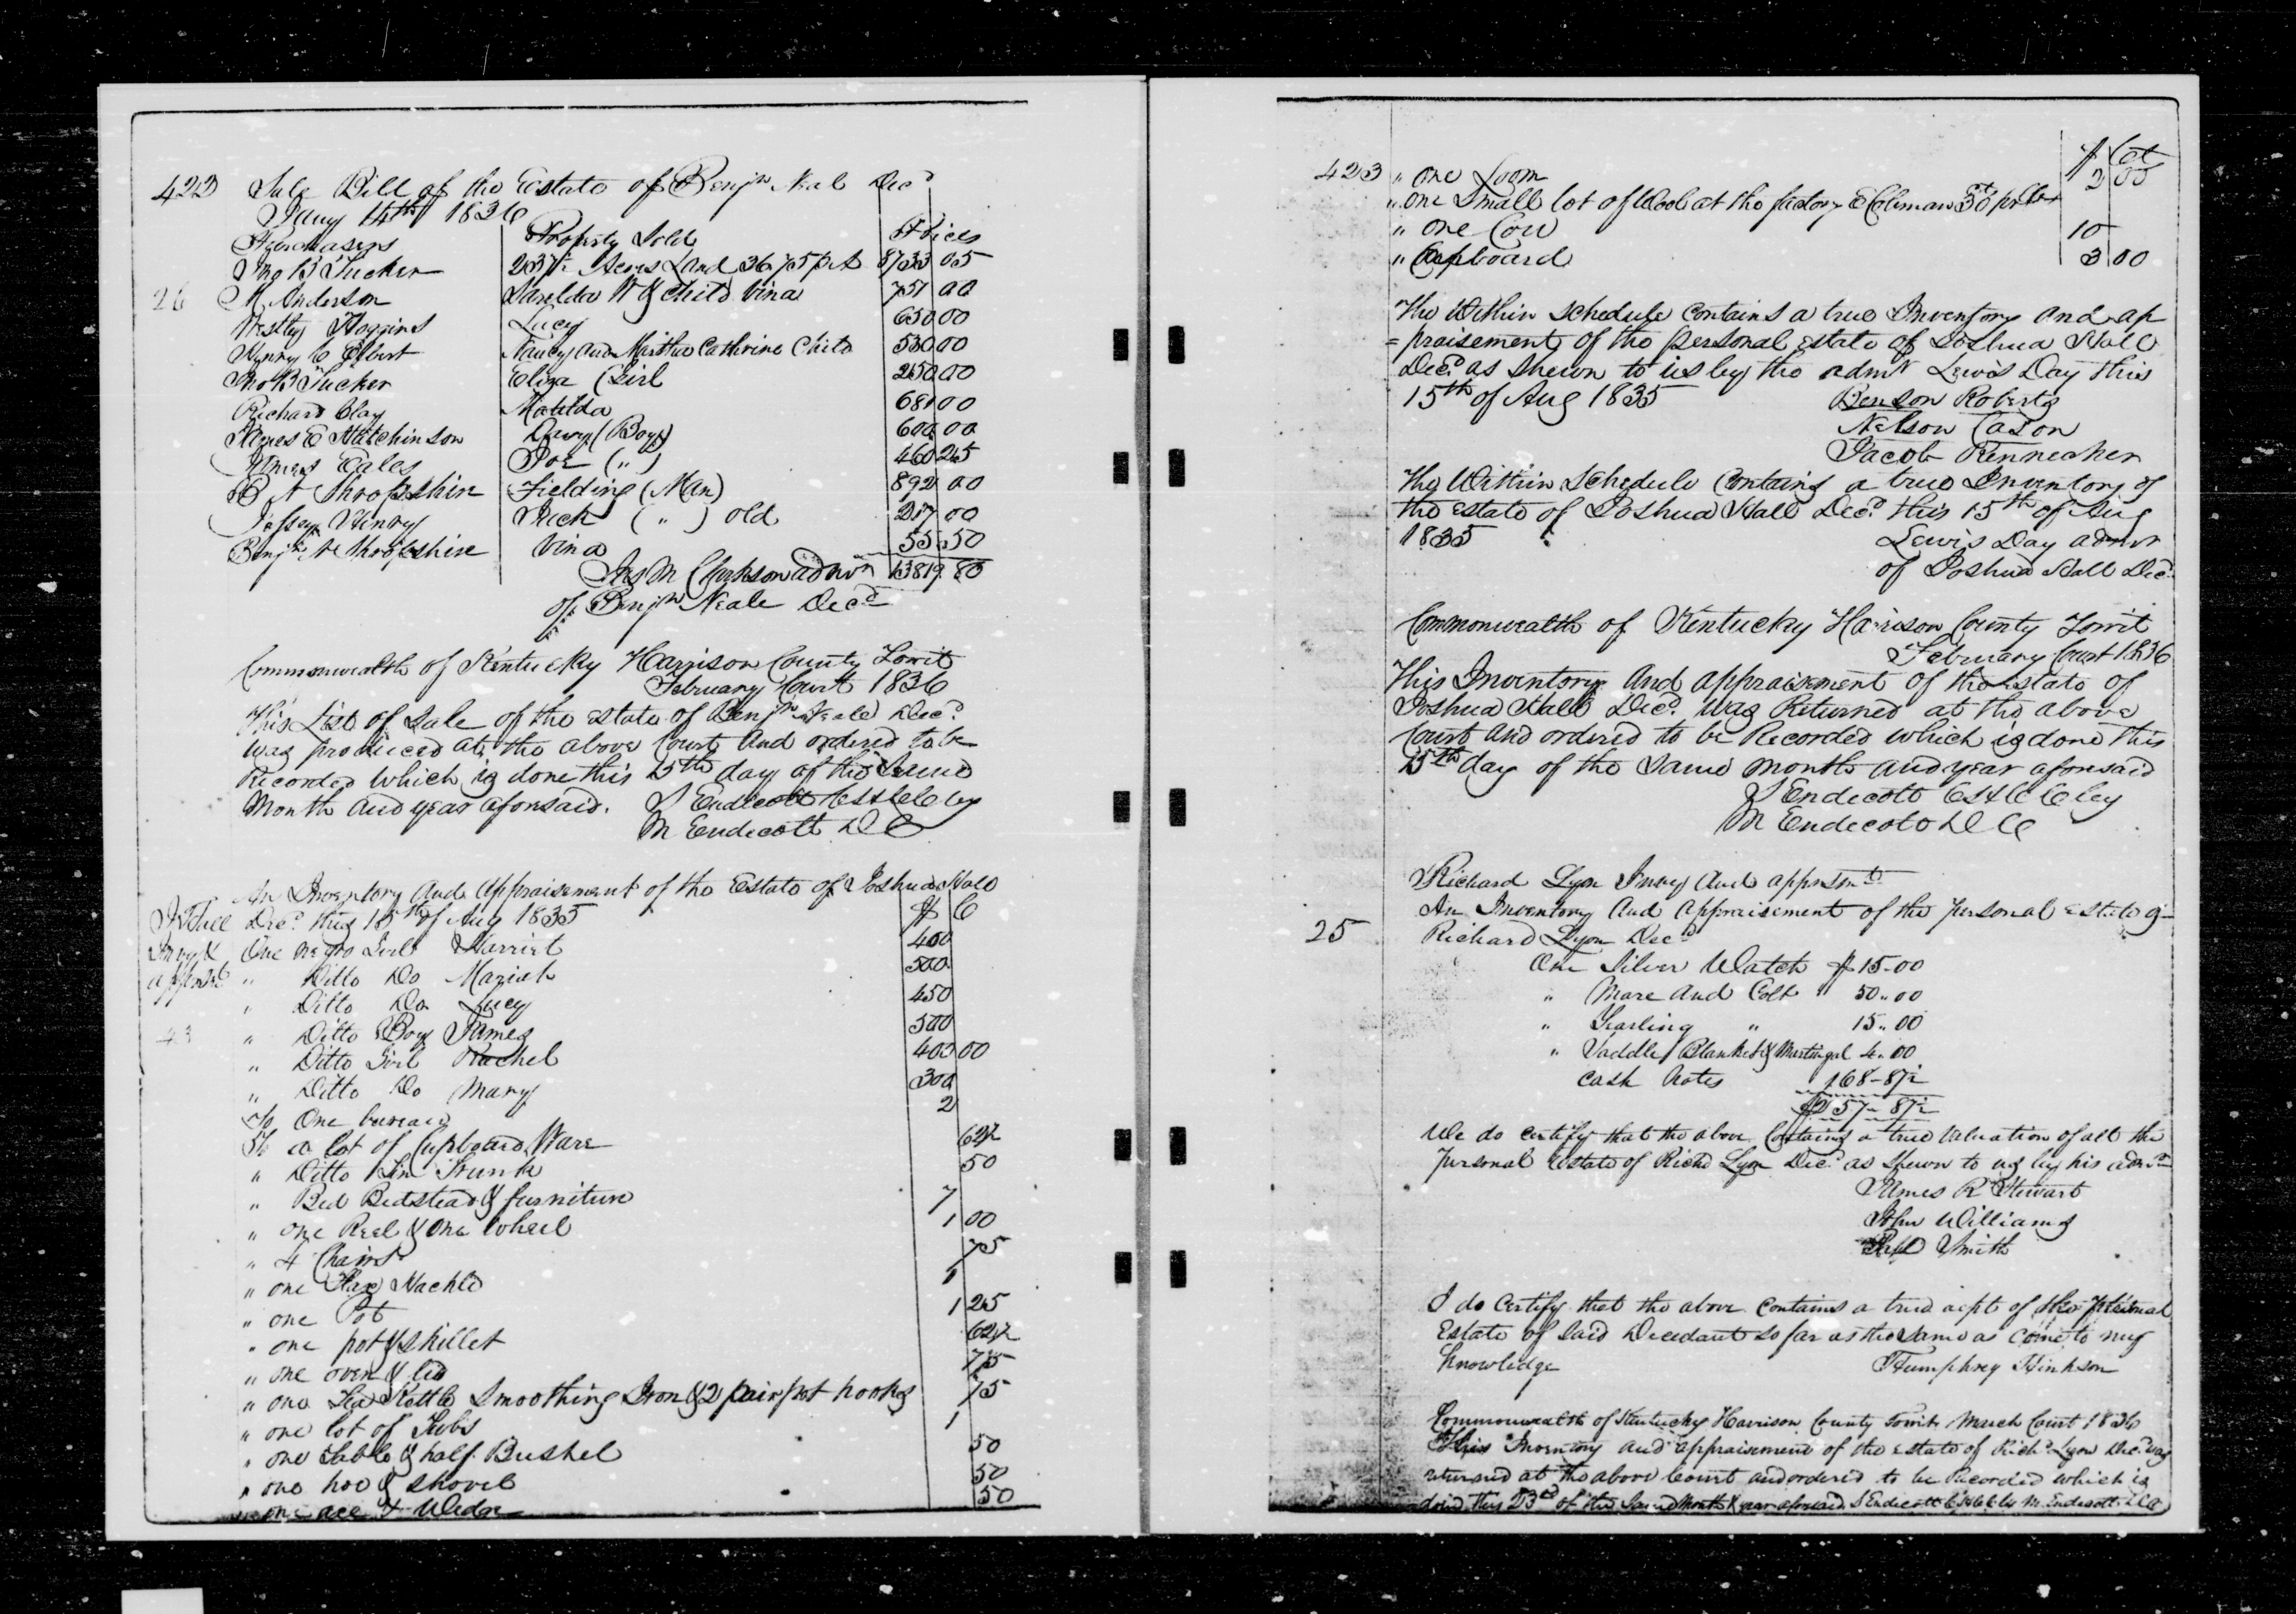 422 Sale Bill of the Estate of Benjn Neal Decd
Jany 14th 1836
Purchasers Property Sold Prices
Jno B Tucker 237½ Acres Land 36.75 pr A 8733 05
26 M Anderson W & Child Vina 751 00
Westley Hoggins Lucy 650 00
Henry C Elbert Nancy and Martha Cathrine Child 530 00
Tucker Eliza (Girl 250 00
Richard Clay Matilda 681 00
James E Hutchinson Davy (Boy) 600 00
James Eales Joe (") 460 25
B N Shropshire Fielding (Man) 892 00
Jessey Henry Dick ( " ) old 217 00
Benjn N Shropshire Vina 55 50
Jas M Clarkson admr 13819.80
of Benjn Neale Decd
Commonwealth of Kentucky Harrison County Towit
February Court 1836
This List of Sale of the estate of Benjn Neale Decd
was produced at the above Court and ordered to be
Recorded which is done this 15th day of the Same
Month and year aforesaid. J Endicott by
M Endecott D C
An Inventory and Appraisement of the Estate of Joshua Hall
J Hall Decd this 15th of Aug 1835 $ C
Invy & One negro Girl Harriet 400
" Ditto Do Mariah 500
" Ditto Do Lucy 450
43 " Ditto Boy James 500
" Ditto Girl Rachel 400 00
" Ditto Do Mary 300
To One bureau 2
To a lot of Cupboard Ware 62½
" Ditto Trunk 50
" Bed Bedstead & furniture 7
" one Reel & One Wheel 1 00
" 4 Chairs 75
" one Flax Hackle 1
" one Pot 1 25
" one pot & skillet 62½
" one oven & lid 75
" one Tea Kettle Smoothing Iron & 2 pair pot hooks 75
" one lot of Tubs 1
" one table & half Bushel 50
" one hoe & shovel 50
" one axe & Wedge 50
423 " one Loom $ Cts
2 00
" one Small lot of Wool at the factory
" one Cow 10
" Cupboard 3 00
The Within Schedule Contains a true Inventory and ap
= praisement of the personal estate of Joshua Hall
Decd as Shewn to us by the admr Lewis Day this
15th of Aug 1835 Benson Roberts
Nelson Cason
Jacob
The Within Schedule Contains a true Inventory of
the estate of Joshua Hall Decd this 15th of Aug
1835 Lewis Day admr
of Joshua Hall Decd
Commonwealth of Kentucky Harrison County Towit
February Court 1836
This Inventory And appraisement of the estate of
Joshua Hall Decd was Returned at the above
Court and ordered to be Recorded which is done this
15th day of the Same month and year aforesaid
J Endecott by
M Endecott D C
Richard Lyon Invy and
An Inventory and Appraisement of the personal estate of
25 Richard Lyon Decd
One Silver Watch $15.00
" Mare and Colt 50..00
" Yearling " 15..00
" Saddle Blanket & Martingal 4.00
Cash Notes 168-87½
We do certify that the above Contains a true Valuation of all the
personal estate of Richd Lyon Decd as shewn to us by his admr
James R Stewart
John Williams
Smith
I do Certify that the above contains a true acpt of the personal
Estate of said Decedant so far as the same as come to my
Knowledge Humphrey Hinkson
Commonwealth of Kentucky Harrison County Towit March Court 1836
This Inventory and appraisement of the estate of Richd Lyon Decd was
returned at the above Court and ordered to be Recorded which is
done this 23rd of the Same Month & year aforesaid J Endecott by M. Endecott D C